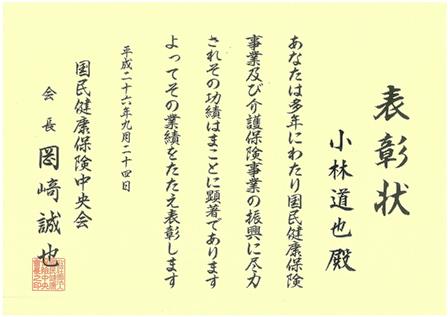 表彰状
小林道也殿
あなたは多年にわたり国民健康保険
事業及び介護保険事業の振興に尽力
されその功績はまことに顕著であります
よってその業績をたたえ表彰します
平成二十六年九月二十四日
国民健康保険中央会
会長 岡﨑誠也